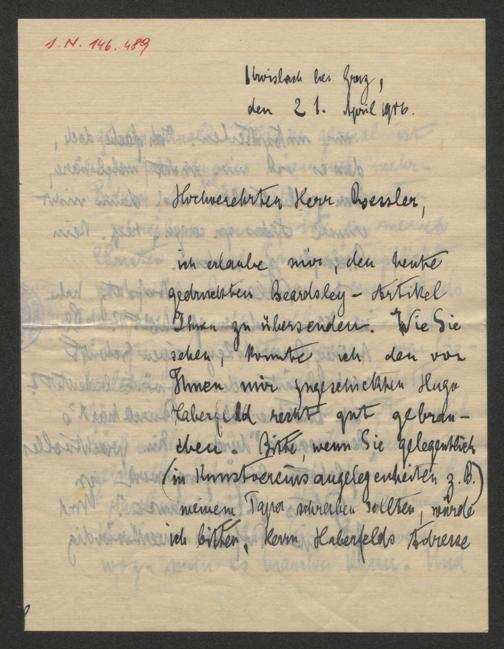 I. N. 146.489
bei Graz,
den 21. April 1916.
Hochverehrter Herr Roessler,
ich erlaube mir, den heute
gedruckten Beardsley-Artikel
Ihnen zu übersenden. Wie Sie
sehen, konnte ich den von
Ihnen mir zugeschickten Hugo
Haberfeld recht gut gebrau-
chen. Bitte, wenn Sie gelegentlich
(in Kunstvereinsangelegenheiten z. B.)
meinem Papa schreiben sollten, würde
ich bitten, Herrn Haberfelds Adresse